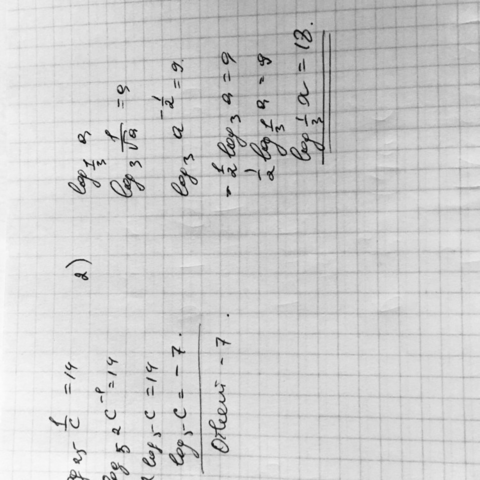 log₂₅ 1/c = 14
log₅2 c⁻¹ = 14
log₅ c = 14
log₅ c = -7.
Ответ -7.
2) log_{1/3} a
log₃ 1/√a = 9
log₃ a^{-1/2} = 9.
-1/2 log₃ a = 9
1/2 log_{1/3} a = 9
log_{1/3} a = 18.